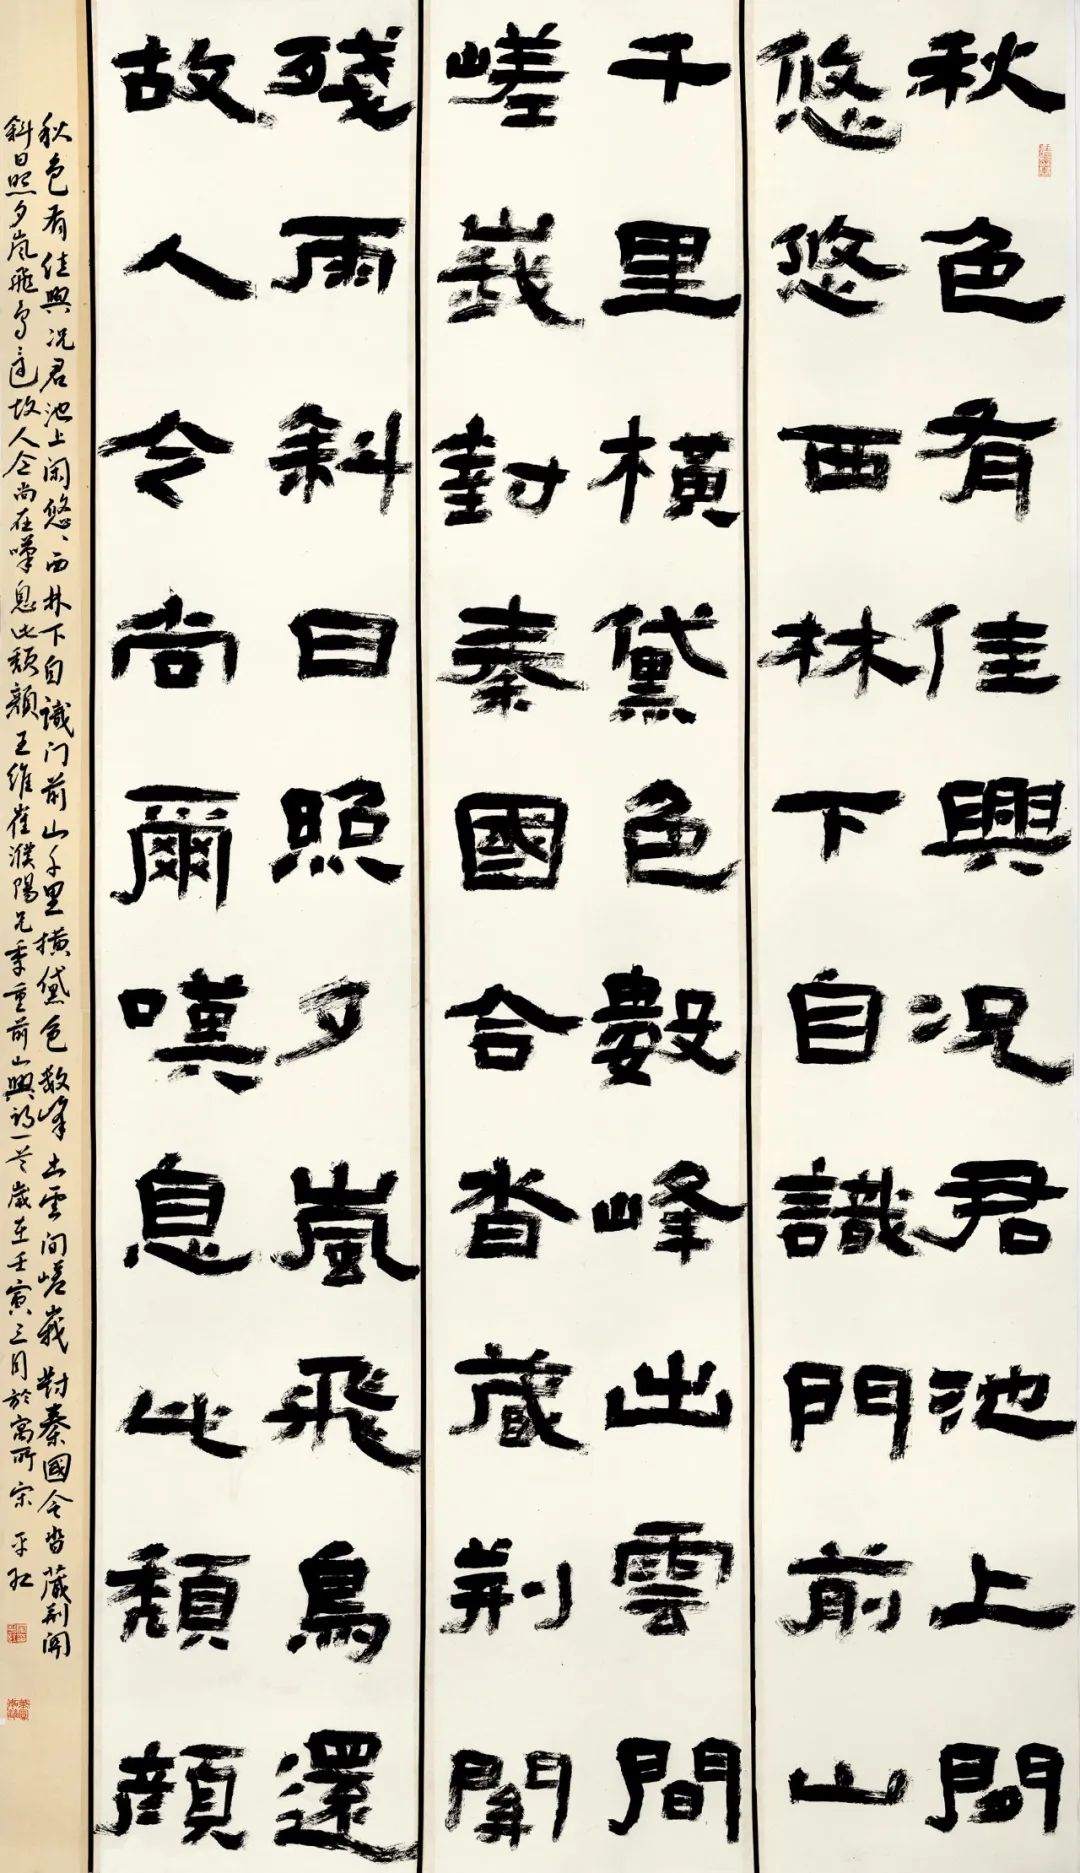 秋色有佳興况君池上閒
悠悠西林下自識門前山
千里橫黛色數峰出雲間
嵯峩對秦國合沓藏荊關
殘雨斜日照夕嵐飛鳥還
故人今尚爾嘆息此頹顏
秋色有佳興况君池上闲悠、西林下自識门前山千里横黛色数峰出雲间嵯峩對秦國合沓藏荊関
斜日照夕嵐飛鳥還故人今尚在嘆息此頹顏王維崔濮陽兄季重前山興詩一首歲在壬寅三月於寓所宋平